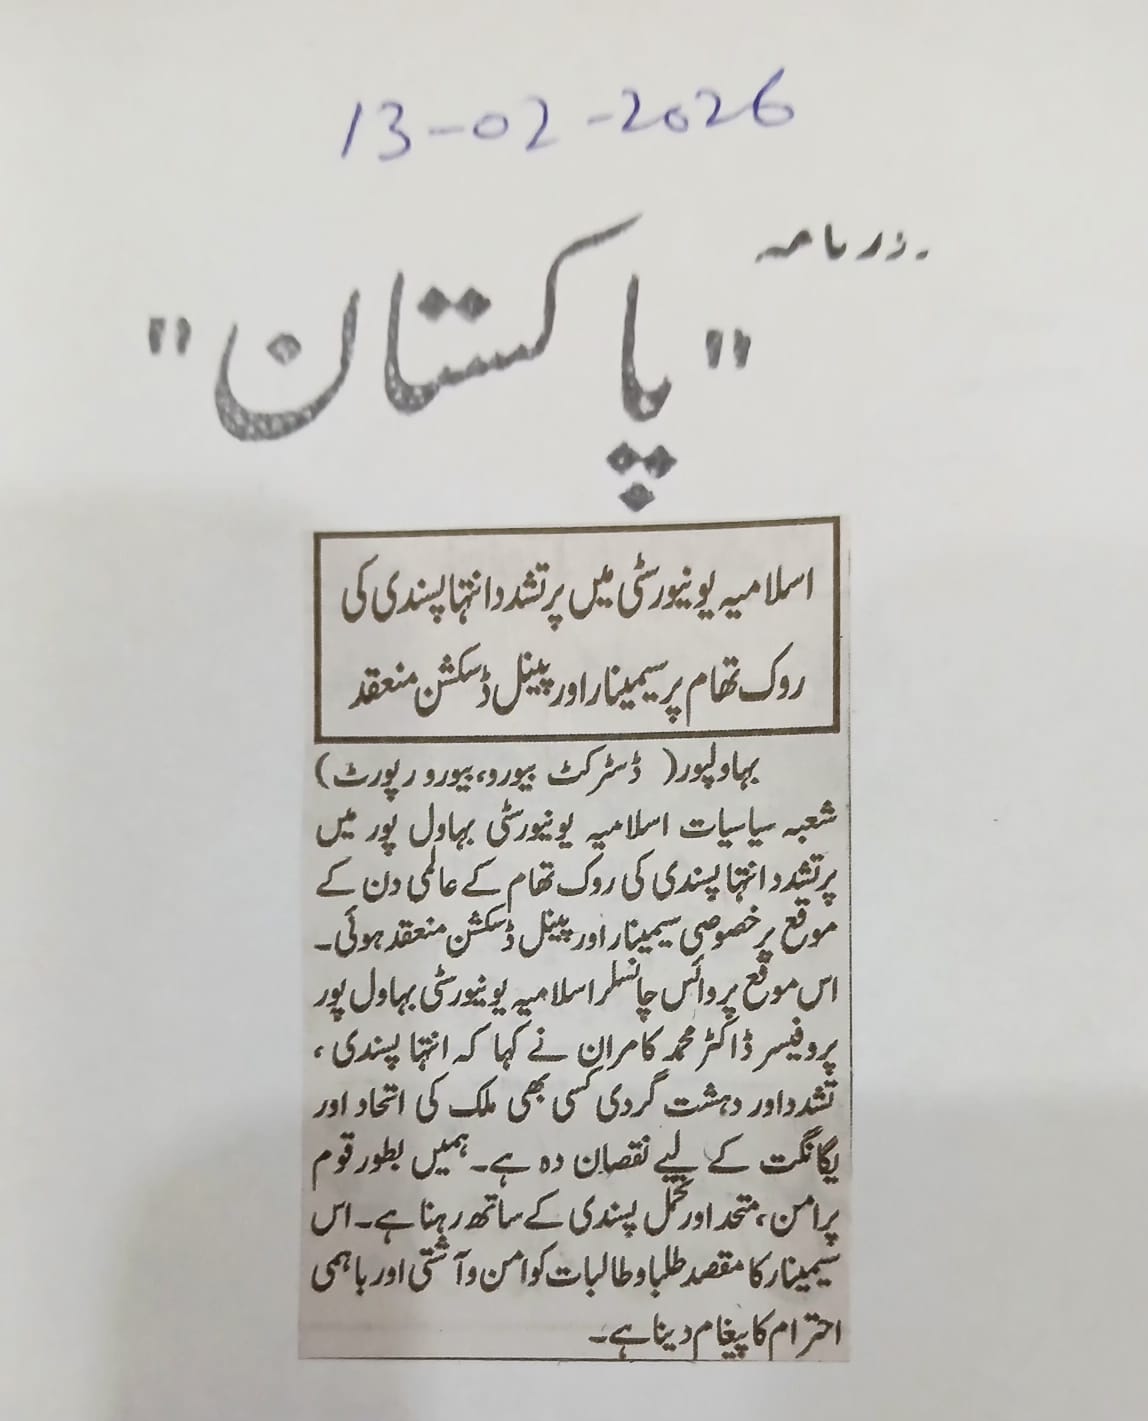 13-02-2026
روزنامہ
"پاکستان"
اسلامیہ یونیورسٹی میں پرتشدد انتہا پسندی کی
روک تھام پر سیمینار اور پینل ڈسکشن منعقد
بہاولپور( ڈسٹرکٹ بیورو، بیورو رپورٹ)
شعبہ سیاسیات اسلامیہ یونیورسٹی بہاول پور میں
پرتشدد انتہا پسندی کی روک تھام کے عالمی دن کے
موقع پر خصوصی سیمینار اور پینل ڈسکشن منعقد ہوئی۔
اس موقع پر وائس چانسلر اسلامیہ یونیورسٹی بہاول پور
پروفیسر ڈاکٹر محمد کامران نے کہا کہ انتہا پسندی ،
تشدد اور دہشت گردی کسی بھی ملک کی اتحاد اور
یگانگت کے لیے نقصان دہ ہے۔ ہمیں بطور قوم
پرامن، متحد اور تحمل پسندی کے ساتھ رہنا ہے۔ اس
سیمینار کا مقصد طلبا و طالبات کو امن و آشتی اور باہمی
احترام کا پیغام دینا ہے۔